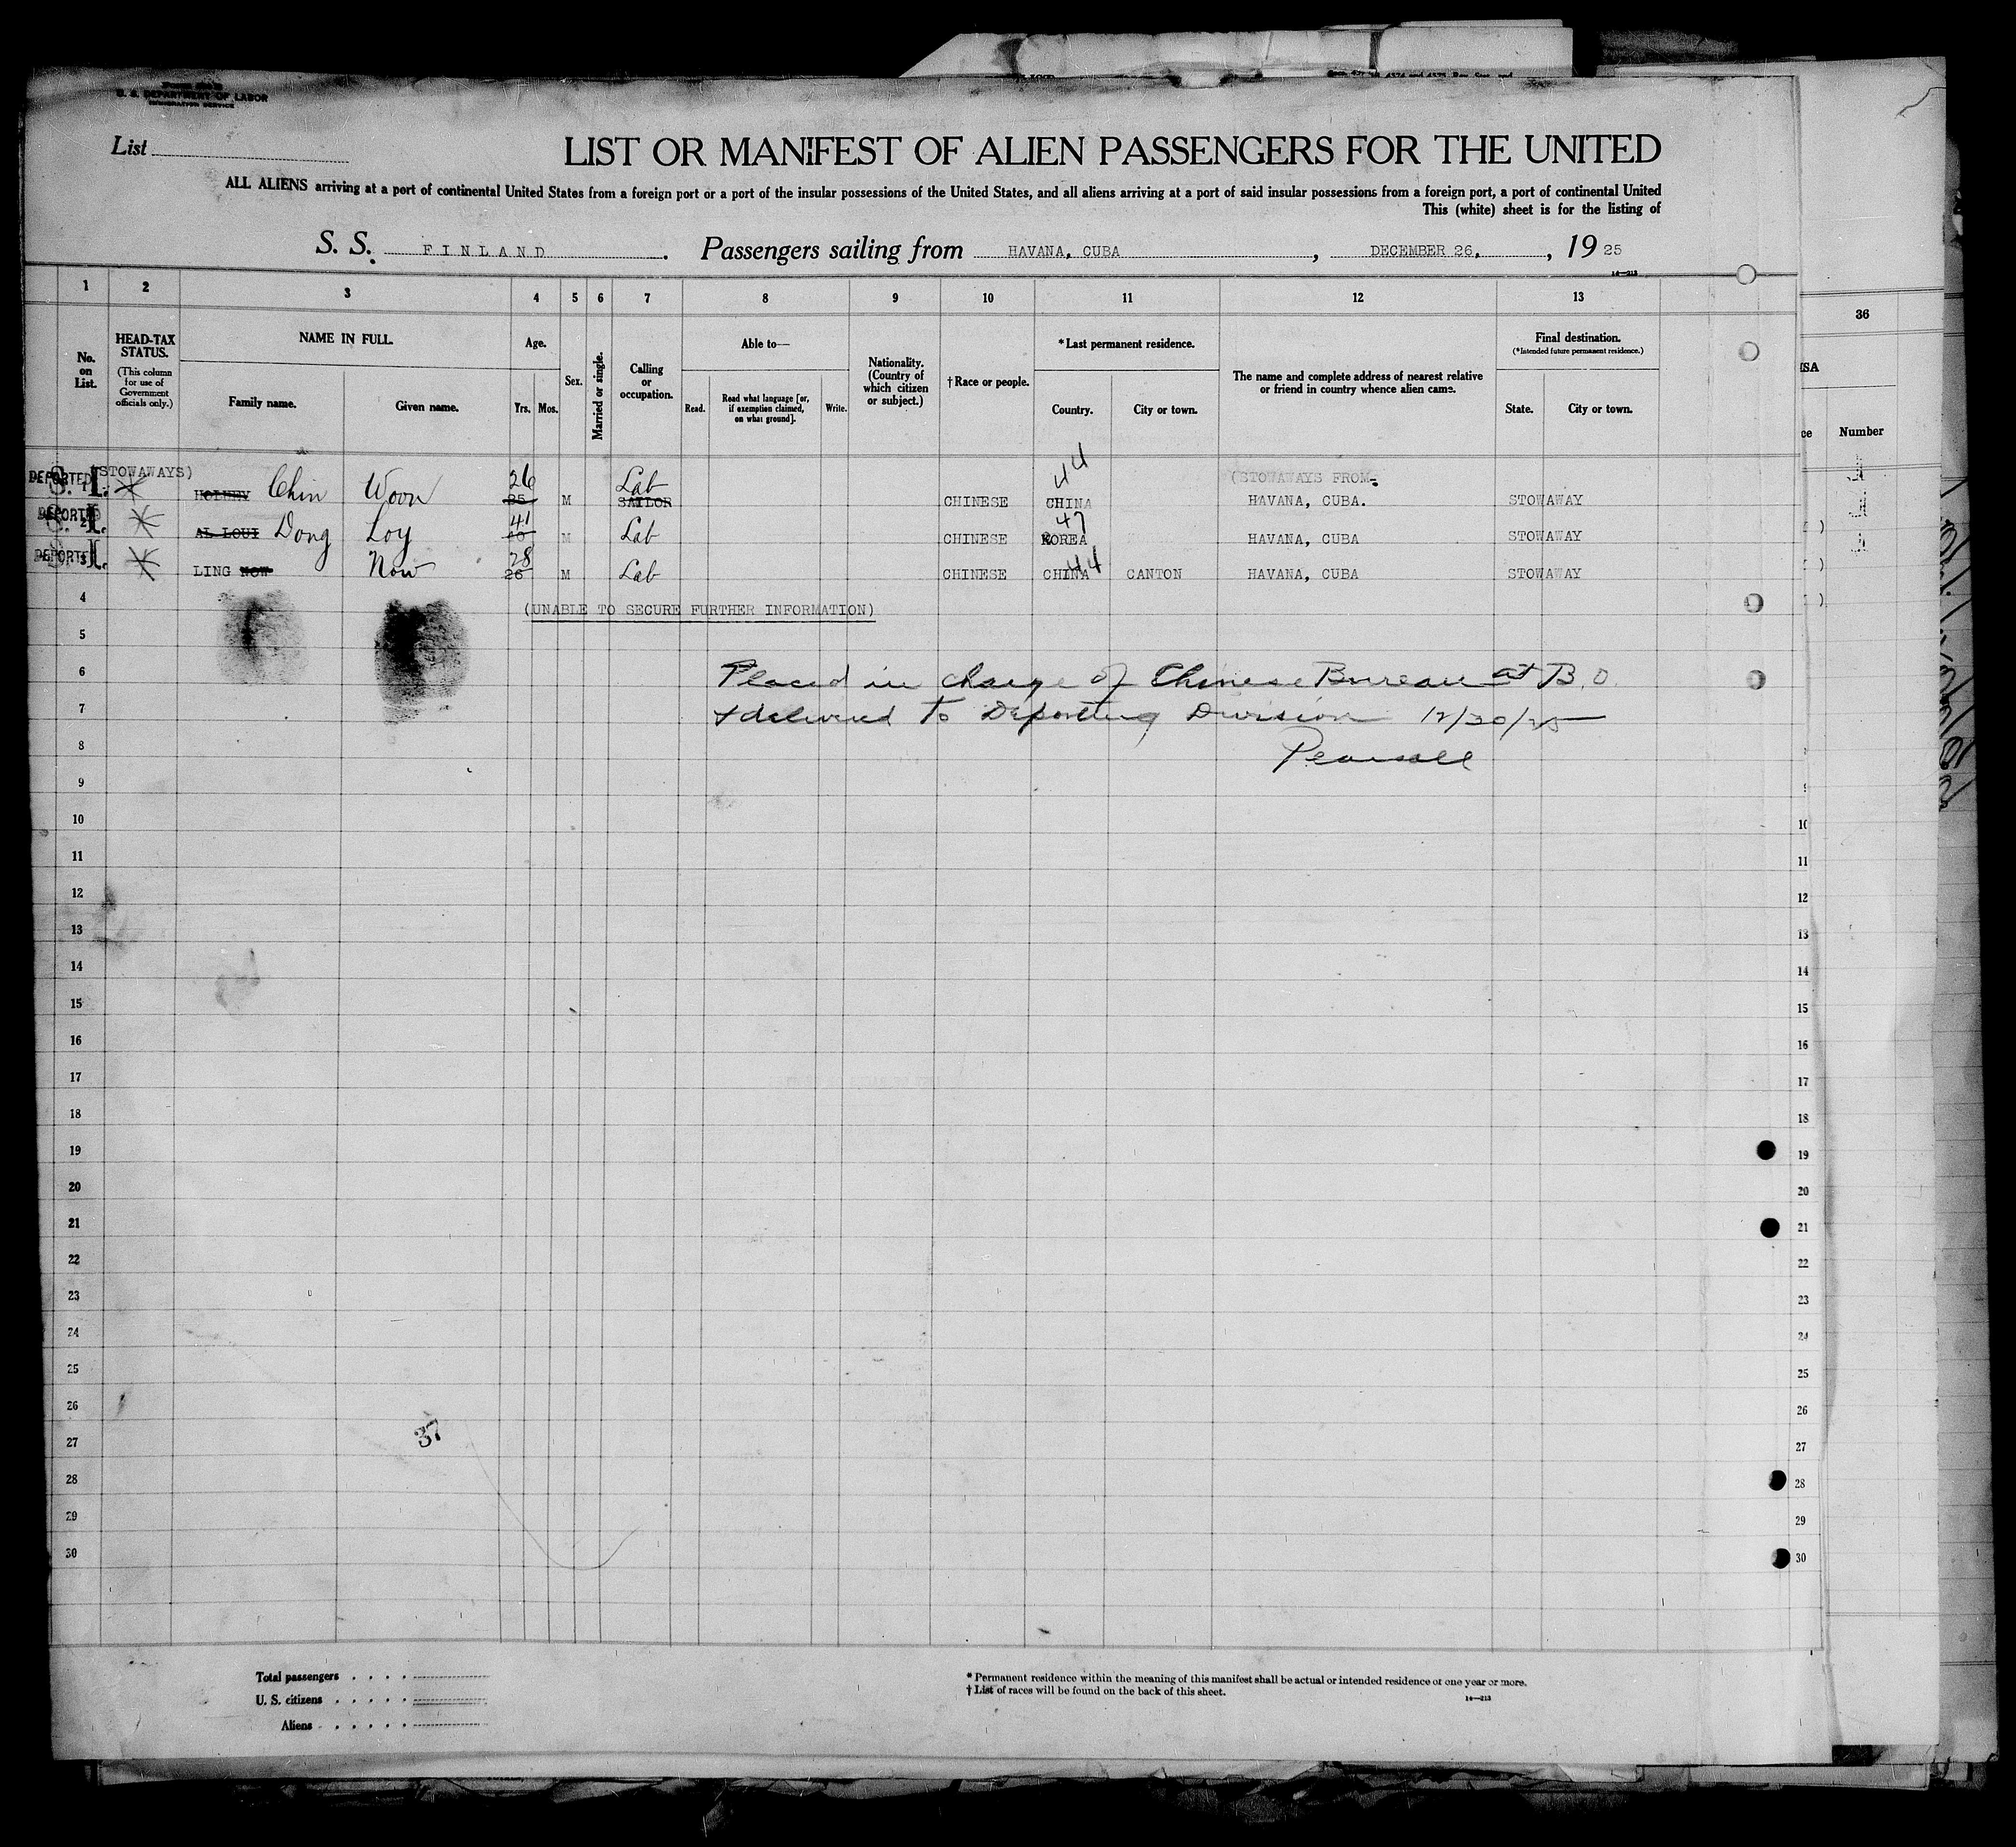 U. S. DEPARTMENT OF LABOR
IMMIGRATION SERVICE
List
LIST OR MANIFEST OF ALIEN PASSENGERS FOR THE UNITED
ALL ALIENS arriving at a port of continental United States from a foreign port or a port of the insular possessions of the United States, and all aliens arriving at a port of said insular possessions from a foreign port, a port of continental United
This (white) sheet is for the listing of
S. S. FINLAND. Passengers sailing from HAVANA, CUBA, DECEMBER 26, , 1925
14—213
1 2 3 4 5 6 7 8 9 10 11 12 13
36
No. on List.
HEAD-TAX STATUS.
(This column for use of Government officials only.)
NAME IN FULL.
Family name. Given name.
Age.
Yrs. Mos.
Sex.
Married or single.
Calling or occupation.
Able to—
Read. Read what language [or, if exemption claimed, on what ground]. Write.
Nationality. (Country of which citizen or subject.)
†Race or people.
*Last permanent residence.
Country. City or town.
The name and complete address of nearest relative or friend in country whence alien came.
Final destination.
(*Intended future permanent residence.)
State. City or town.
Number
(STOWAWAYS) (STOWAWAYS FROM-
DEPORTED S. I. Chin Woon 26 25 M Lab SAILOR CHINESE 44 CHINA HAVANA, CUBA. STOWAWAY
DEPORTED S. I. AL LOUI Dong Loy 41 40 M Lab CHINESE 47 KOREA HAVANA, CUBA STOWAWAY
DEPORTED S. I. LING NOW Now 28 26 M Lab CHINESE CHINA 44 CANTON HAVANA, CUBA STOWAWAY
4 (UNABLE TO SECURE FURTHER INFORMATION)
5
6 Placed in charge of Chinese Bureau at B.O.
7 & delivered to Deporting Division 12/30/25
8 Pearsall
9
10 10
11 11
12 12
13 13
14 14
15 15
16 16
17 17
18 18
19 19
20 20
21 21
22 22
23 23
24 24
25 25
26 26
37
27 27
28 28
29 29
30 30
Total passengers . . . .
U. S. citizens . . . . .
Aliens . . . . . .
*Permanent residence within the meaning of this manifest shall be actual or intended residence of one year or more.
†List of races will be found on the back of this sheet.
14—213